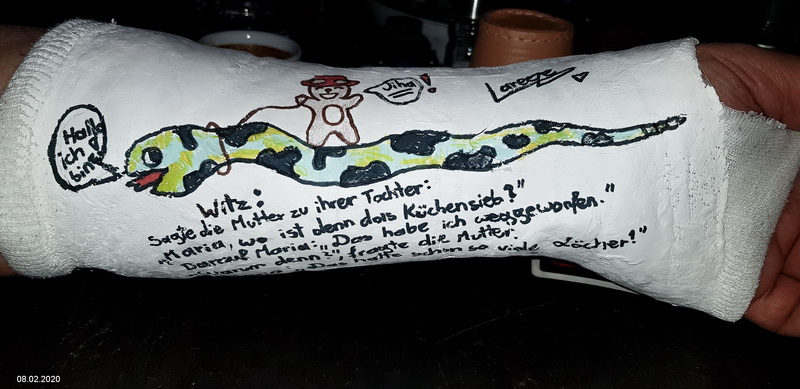 Hallo
ich
bins
Jiha!
Witz:
Sagte die Mutter zu ihrer Tochter:
"Maria, wo ist denn das Küchensieb?"
"Darauf Maria: "Das habe ich weggeworfen."
"Warum denn?", fragte die Mutter.
"Das hatte schon so viele Löcher!"
08.02.2020